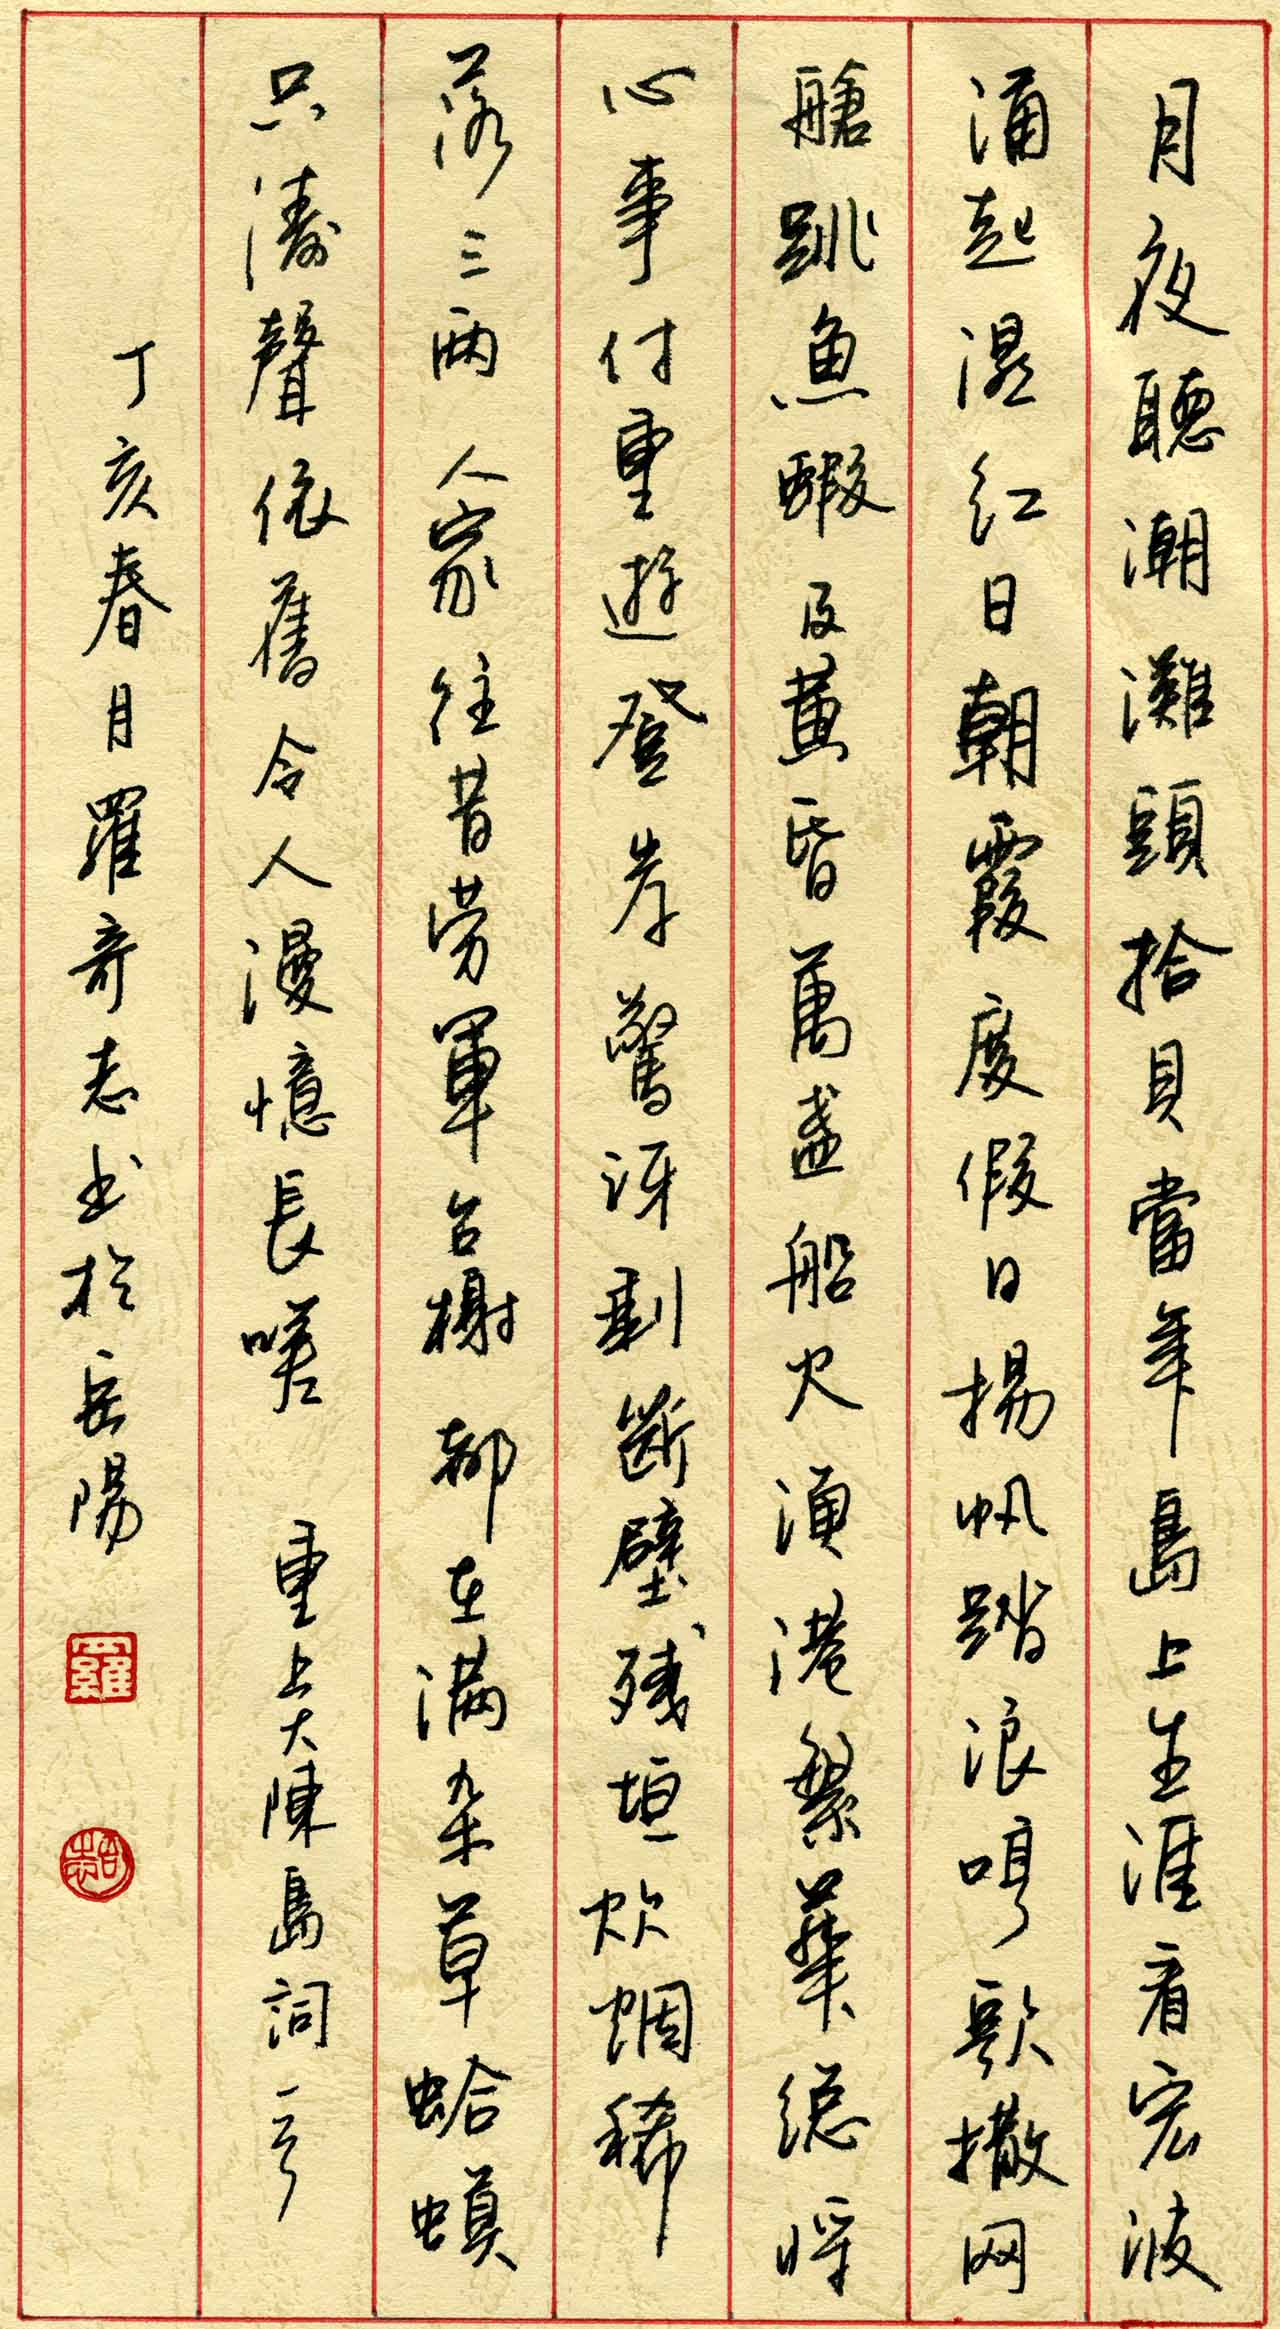 月夜聽潮灘頭拾貝當年島上生涯看宏波
涌起混紅日朝霞度假日揚帆踏浪哼歌撒网
艙跳魚蝦及黄昏萬盞船火漁港繁華總將
心事付重遊登岸驚訝剩斷壁殘垣炊烟稀
落三兩人家往昔劳軍台榭都在满杂草蛤蟆
只濤聲依舊令人漫憶長嗟 重上大陳島詞一首
丁亥春月羅奇志书於岳陽
羅
奇志